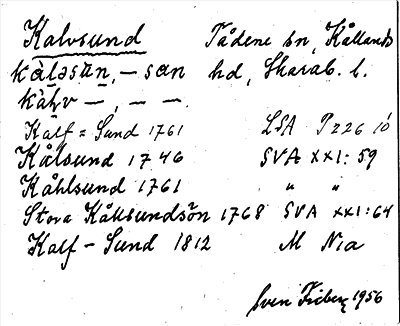 Kalvsund Tådene sn, Kållands
kàləsún, – sən hd, Skarab. l.
kàḷv –, – –
Kalf = Sund 1761 LSA P226 10
Kålsund 1746 SVA XXI: 59
Kåhlsund 1761 " "
Stora Kållsundsön 1768 SVA XXI: 64
Kalf – Sund 1812 M N1a
Sven Friberg 1956